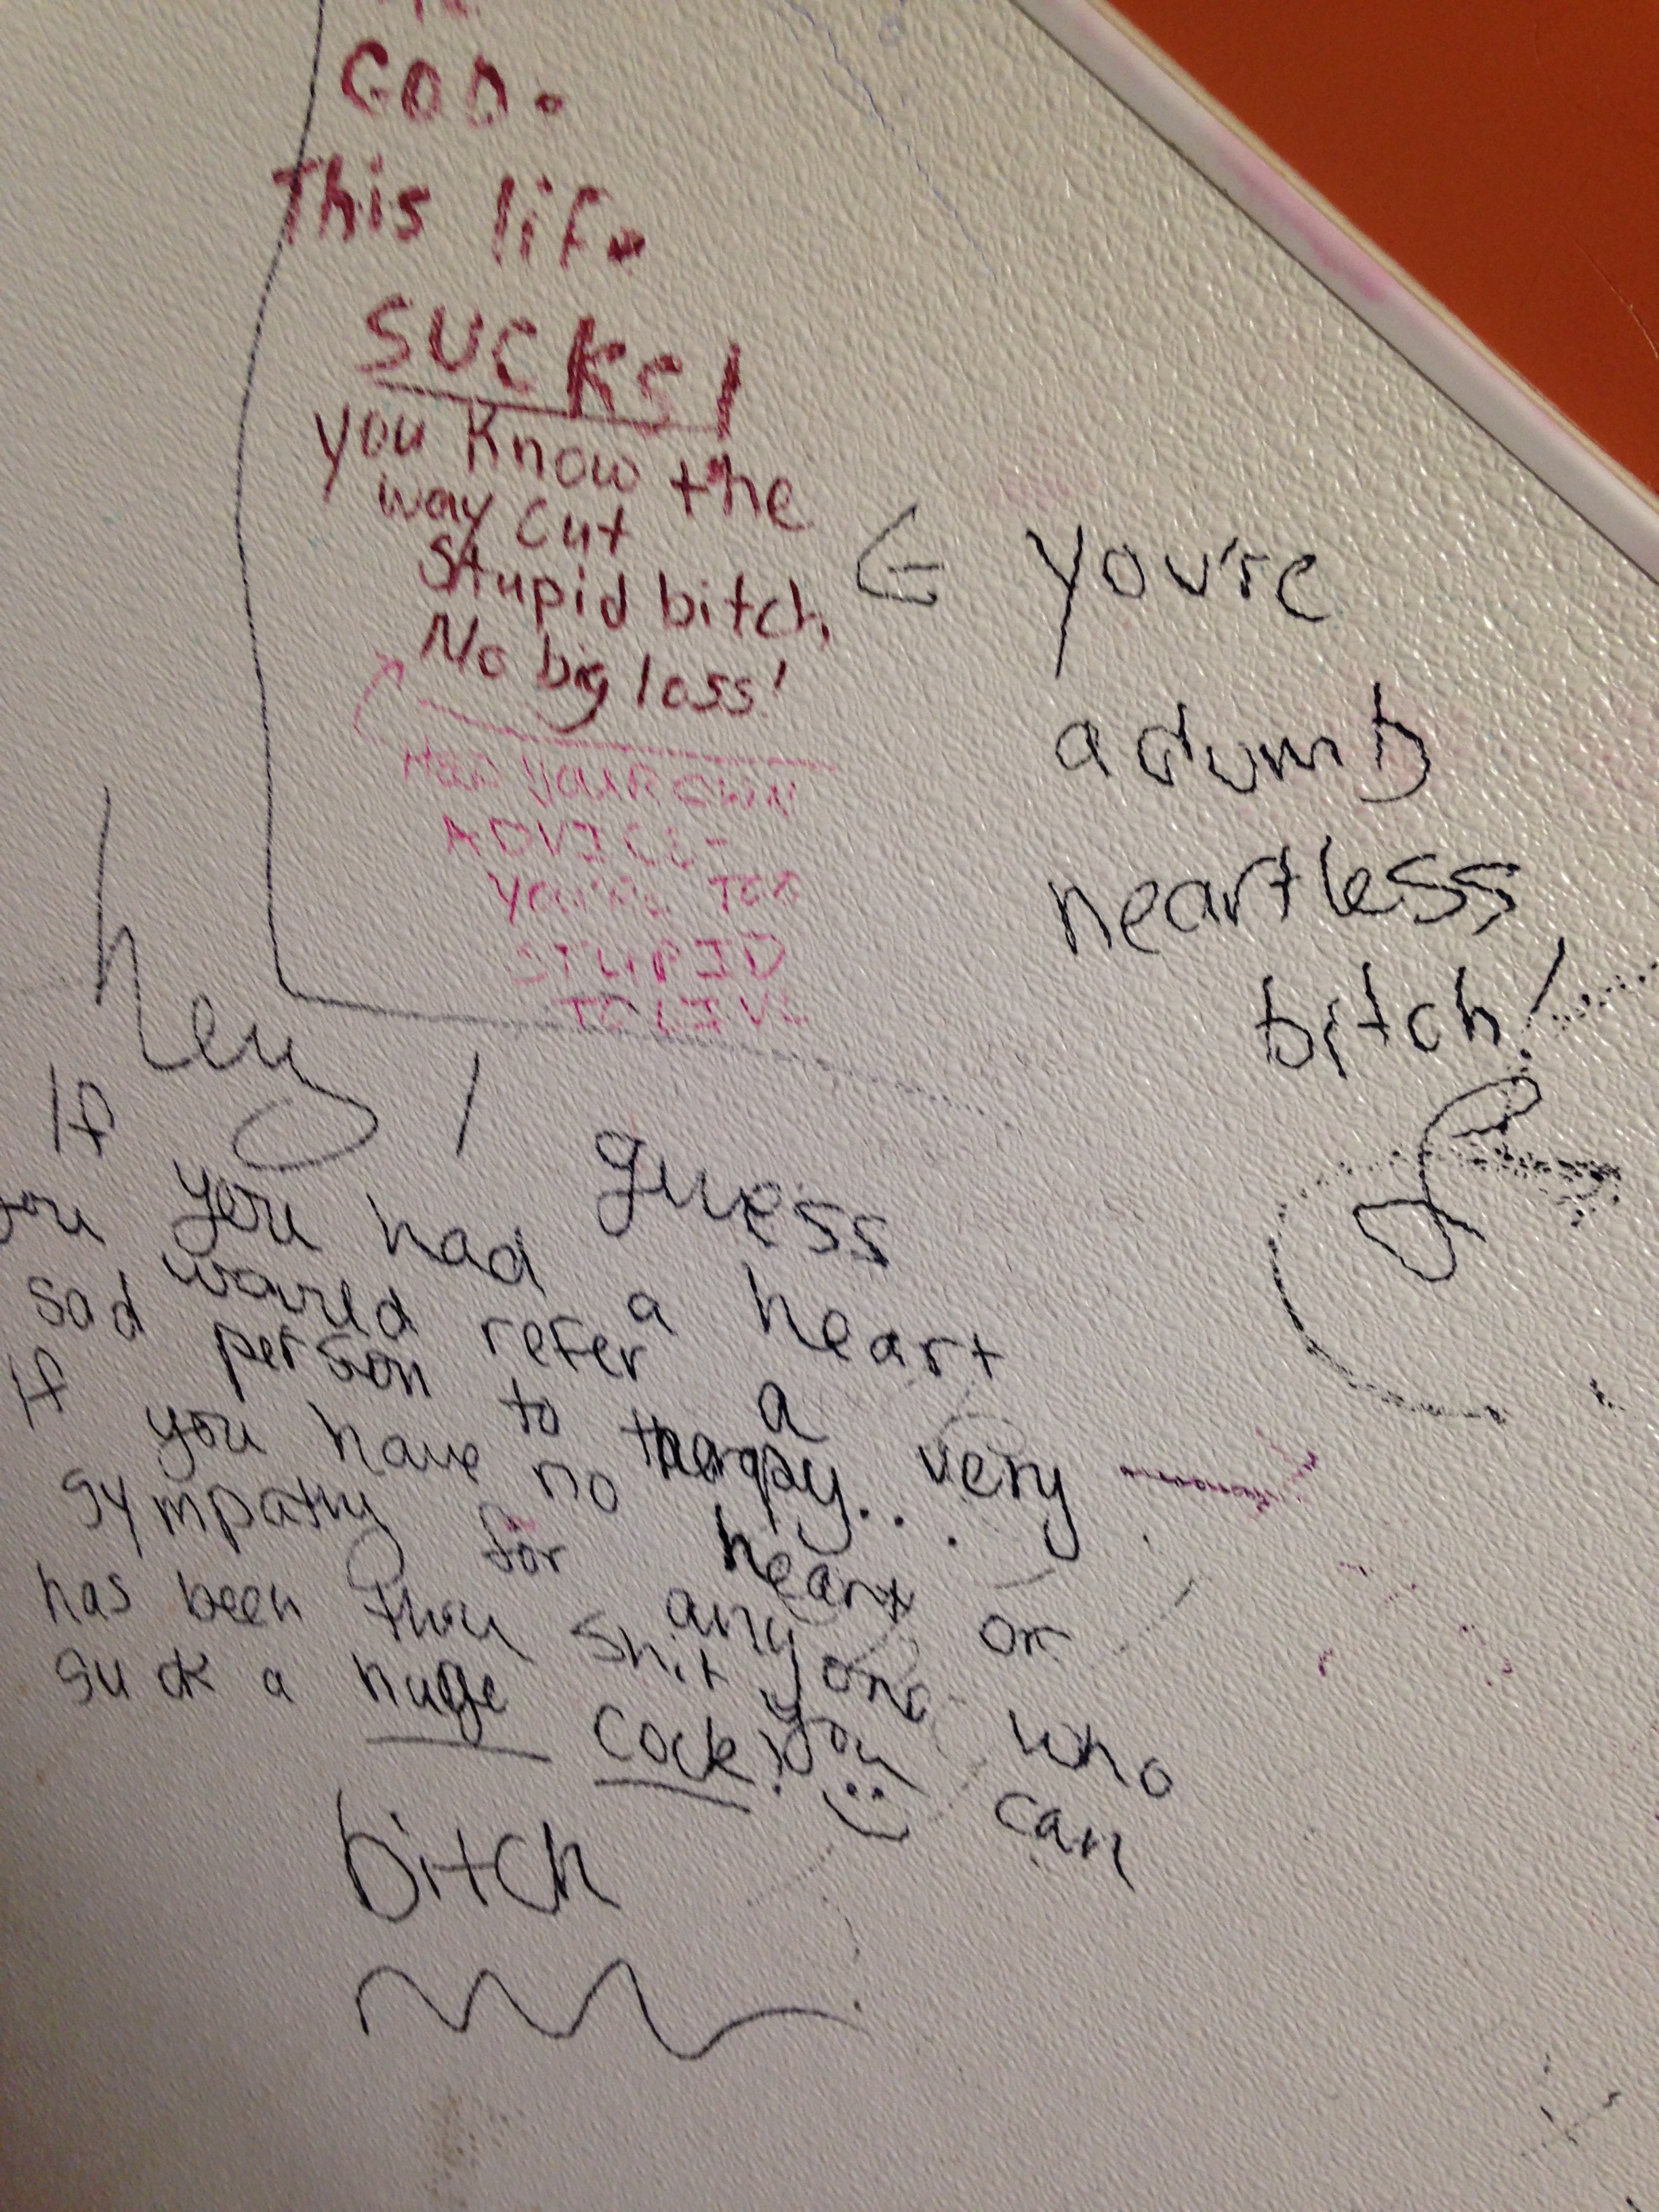 GOD.
This life
SUCKS!
you Know the
way out
Stupid bitch,
No big loss!
YOUR OWN
ADVICE-
YOU'RE TOO
STUPID
TO LIVE
you're
a dumb
heartless
bitch!
hey!
If you had a heart
you would refer a very
sad person to therapy...
If you have no heart or
sympathy for anyone who
has been thru shit you can
suck a huge cock!
bitch
guess